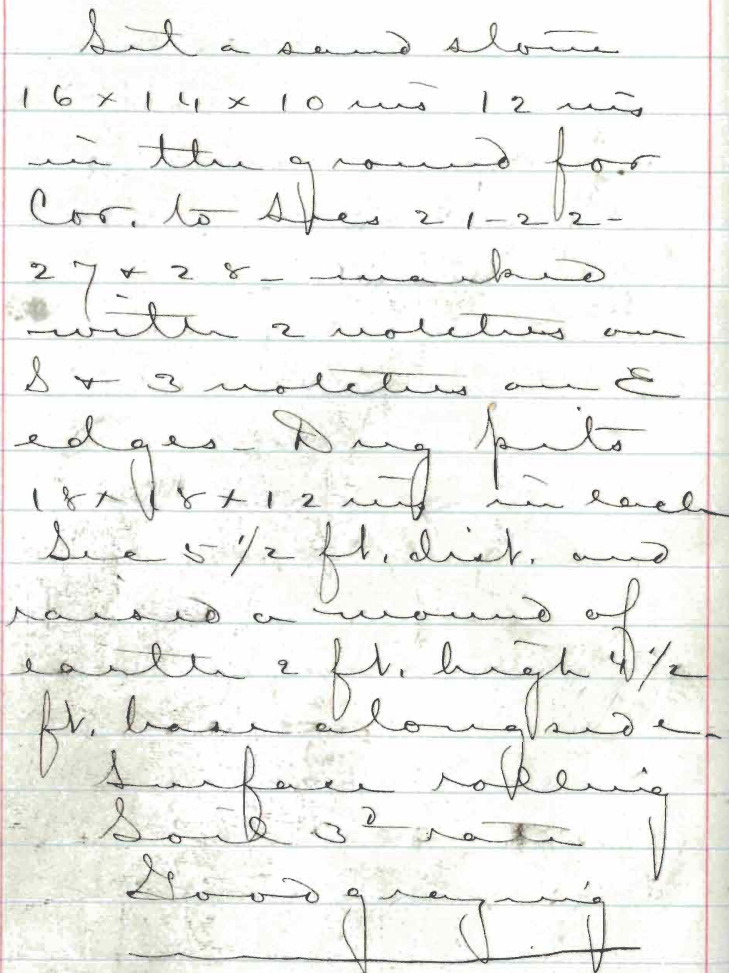 Set a sand stone
16 x 14 x 10 ins 12 ins
in the ground for
Cor. to Secs 21-22-
27 & 28- marked
with 2 notches on
S & 3 notches on E
edges- Dug pits
18 x 18 x 12 ins in each
Sec 5 1/2 ft. dist. and
raised a mound of
earth 2 ft. high 4 1/2
ft. base alongside-
Surface rolling
Soil 3d rate
Good grazing